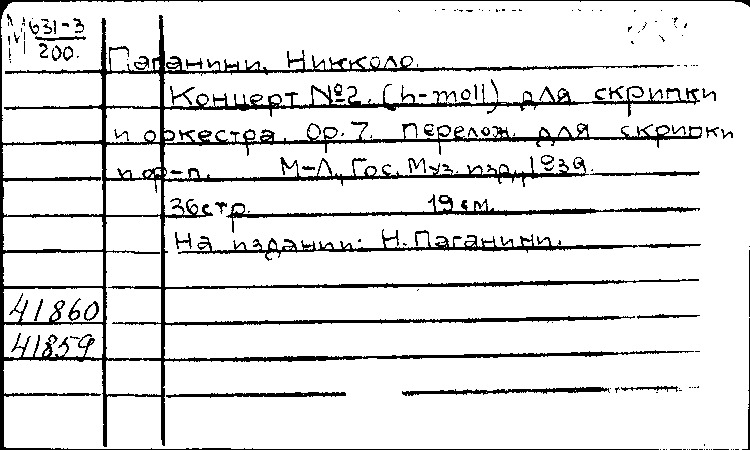 М 631-3
200.
Паганини, Никколо.
Концерт №2. (h-moll) для скрипки
и оркестра. Op. 7. Перелож. для скрипки
и ф-п. М-Л., Гос. Муз. изд., 1939.
36стр. 19см.
На издании: Н. Паганини.
41860
41859